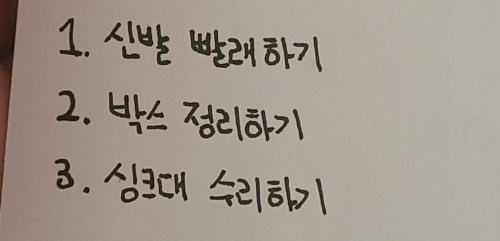 1. 신발 빨래하기
2. 박스 정리하기
3. 싱크대 수리하기